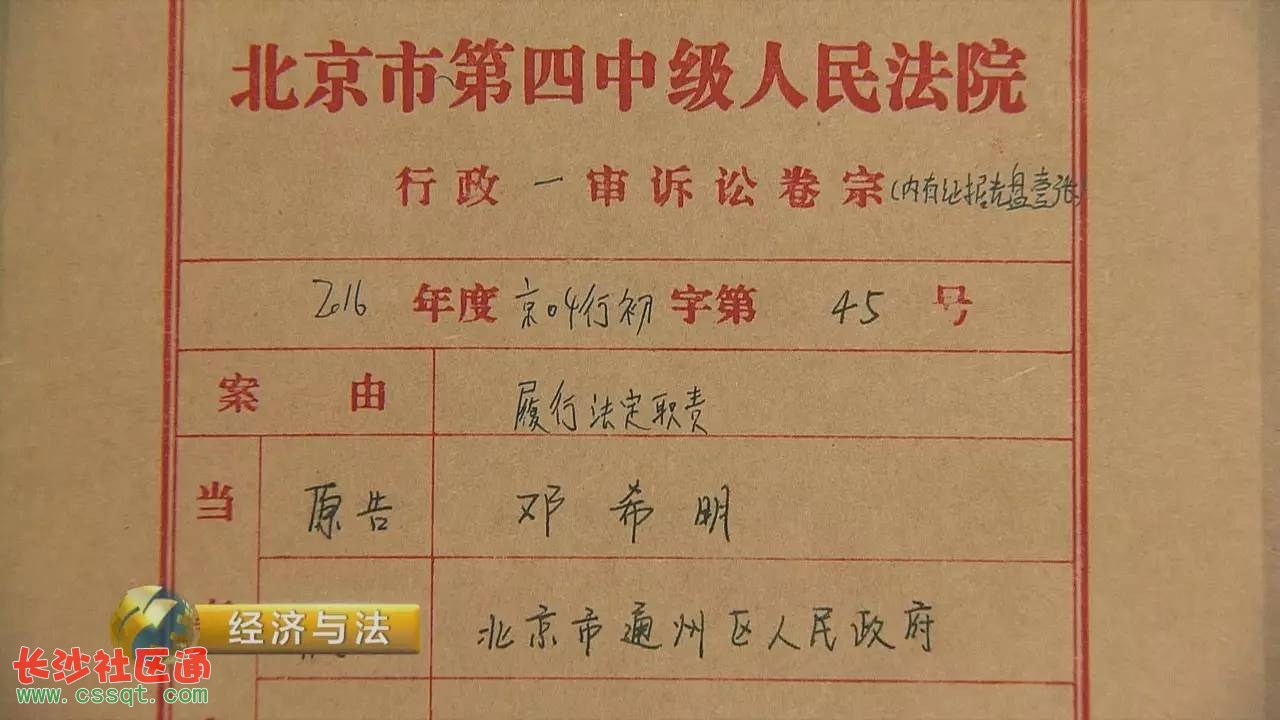 北京市第四中级人民法院
行政一审诉讼卷宗(内有证据光盘壹张)
2016年度京04行初字第45号
案由 履行法定职责
当 原告 邓希明
北京市通州区人民政府
经济与法
长沙社区通
www.cssqt.com